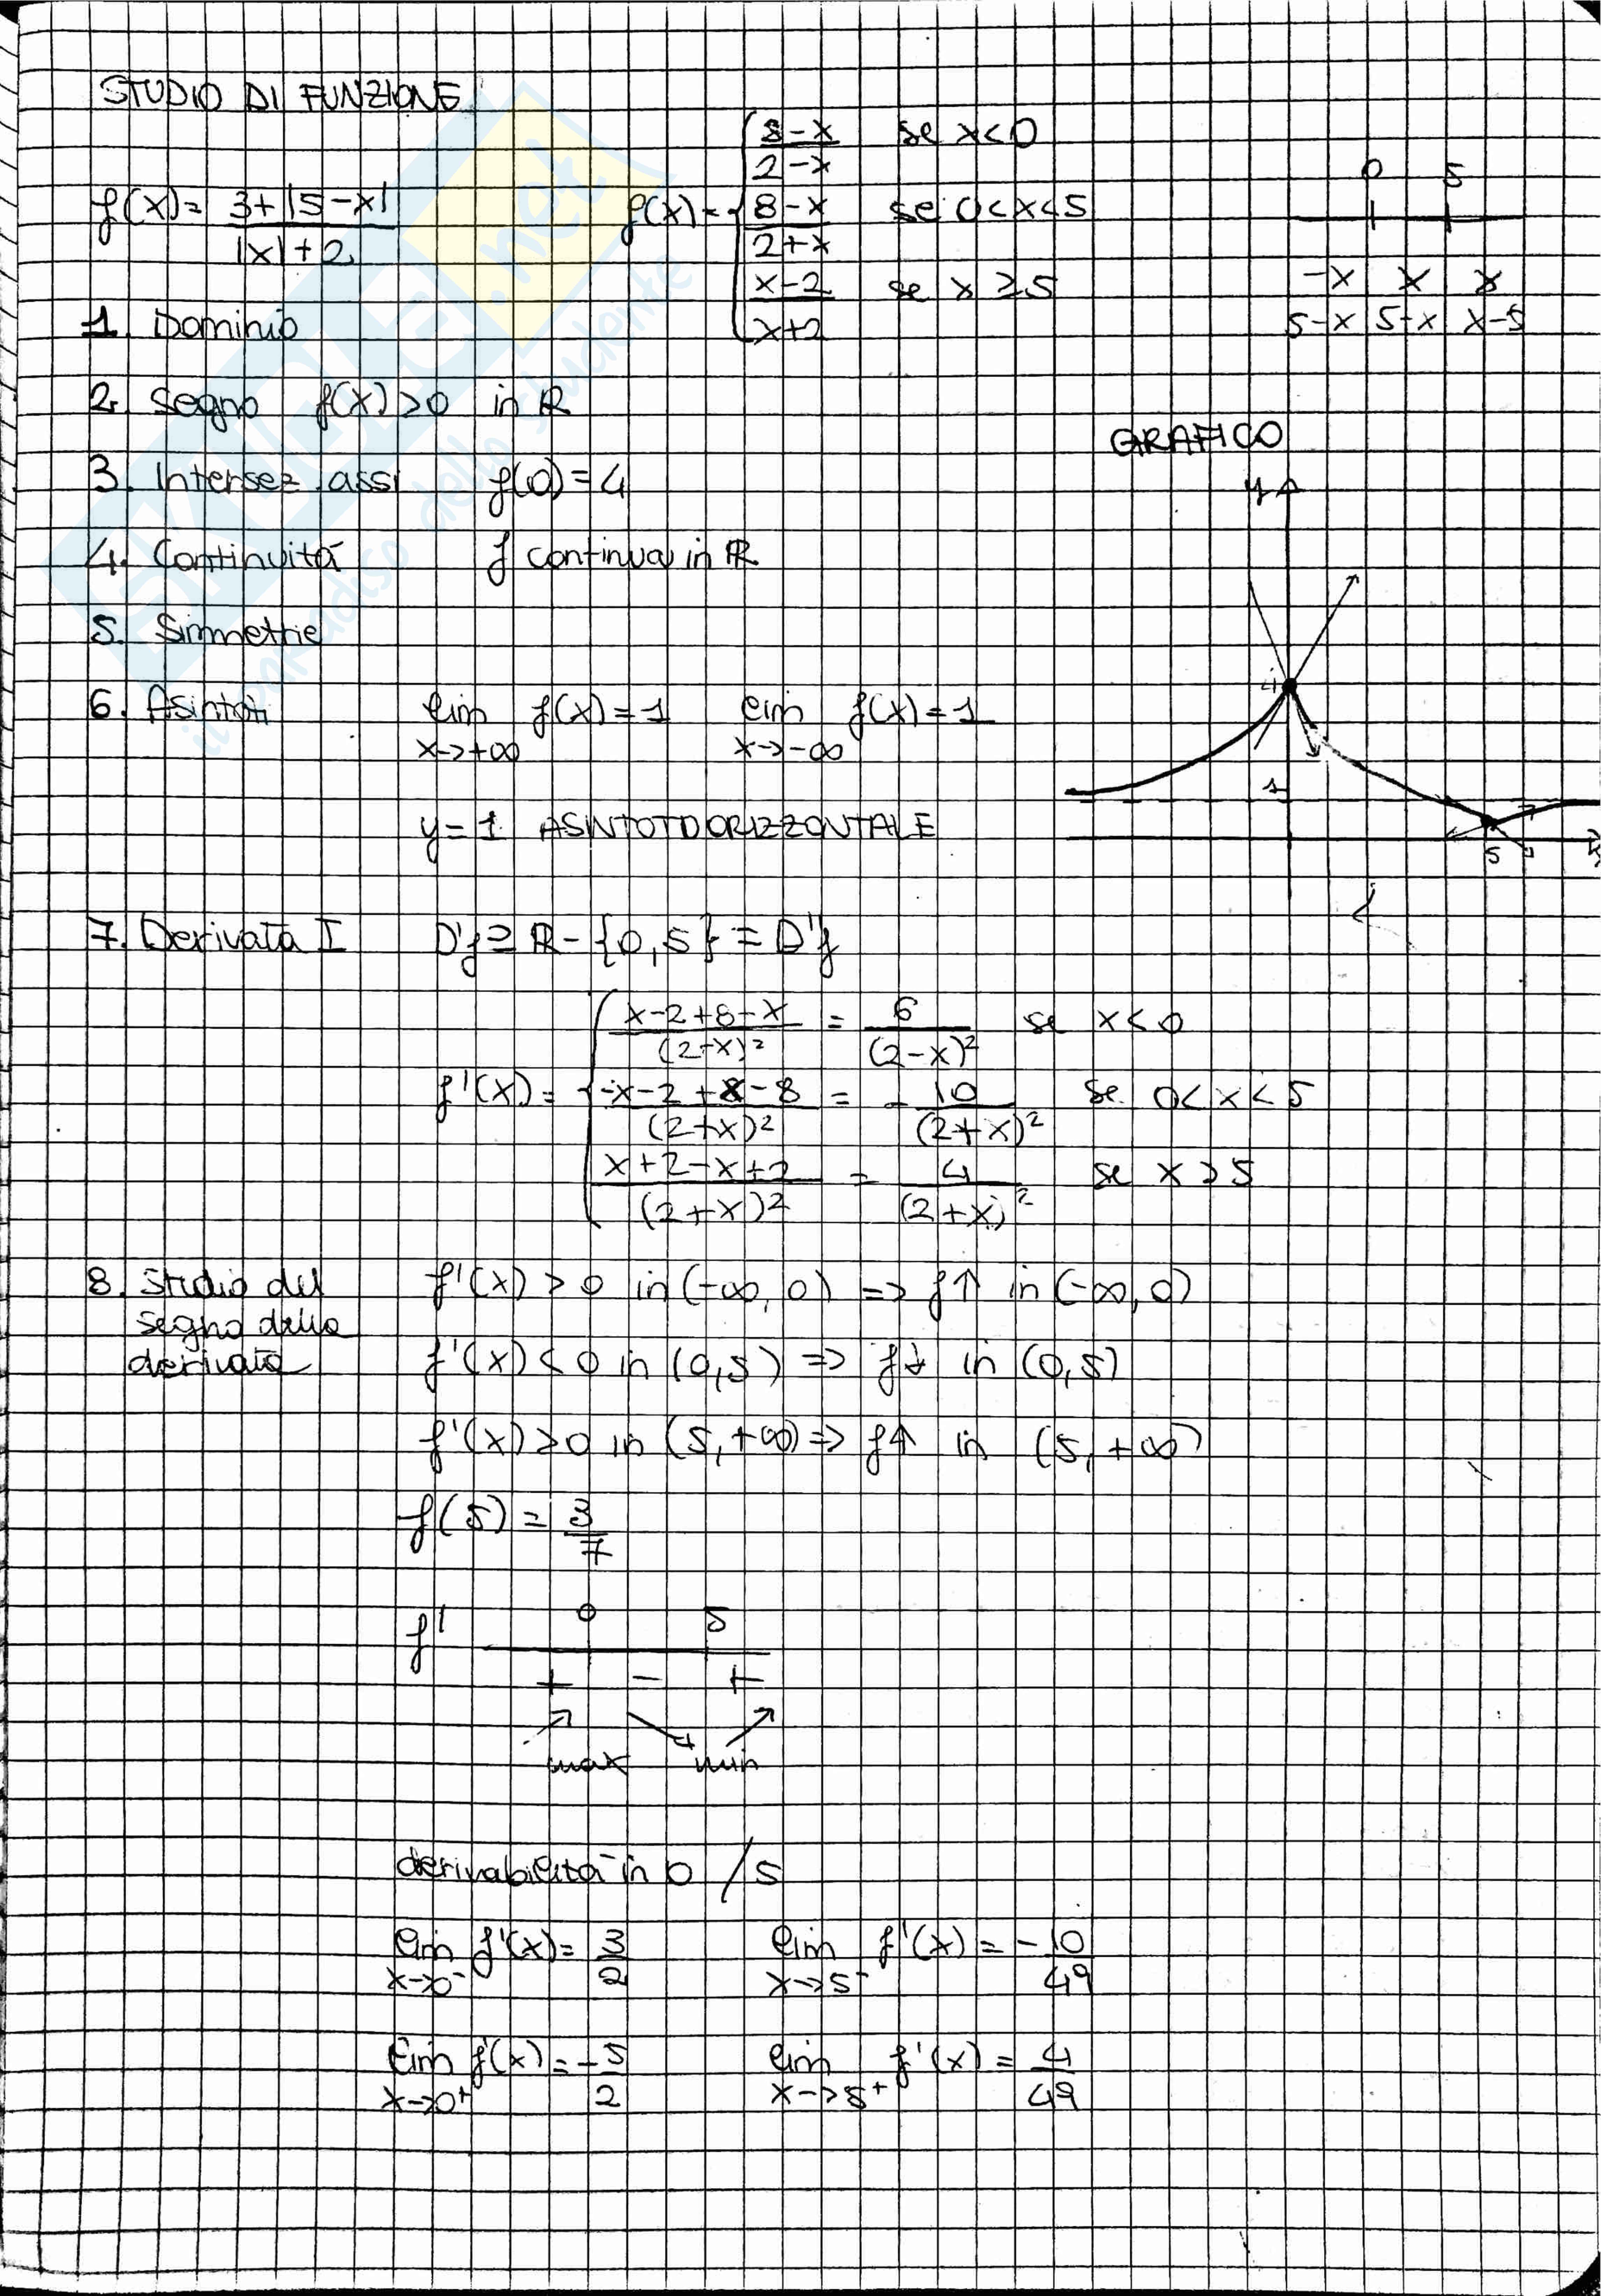 STUDIO DI FUNZIONE
f(x) = (3+|5-x|)/(|x|+2)
f(x) = { (8-x)/(2-x) se x<0
(8-x)/(2+x) se 0<x<5
(x-2)/(x+2) se x≥5
0 5
-x x x
5-x 5-x x-5
1. Dominio
2. Segno f(x)>0 in ℝ
3. Intersez. assi f(0)=4
4. Continuità f continua in ℝ
5. Simmetrie
6. Asintoti lim x→+∞ f(x)=1 lim x→-∞ f(x)=1
y=1 ASINTOTO ORIZZONTALE
GRAFICO
y
4
1
5
x
7. Derivata I D'f ⊇ ℝ-{0,5} = D'f
f'(x) = { (x-2+8-x)/(2-x)² = 6/(2-x)² se x<0
(-x-2+x-8)/(2+x)² = -10/(2+x)² se 0<x<5
(x+2-x+2)/(2+x)² = 4/(2+x)² se x>5
8. Studio del segno della derivata
f'(x)>0 in (-∞,0) => f↑ in (-∞,0)
f'(x)<0 in (0,5) => f↓ in (0,5)
f'(x)>0 in (5,+∞) => f↑ in (5,+∞)
f(5) = 3/7
f' 0 5
+ - +
max min
derivabilità in 0 / 5
lim x→0⁻ f'(x) = 3/2 lim x→5⁻ f'(x) = -10/49
lim x→0⁺ f'(x) = -5/2 lim x→5⁺ f'(x) = 4/49
SKUOLA.net
il paradiso dello studente